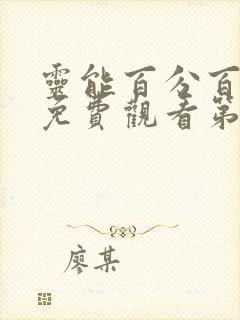 靈能百分百
免費觀看第
廖某